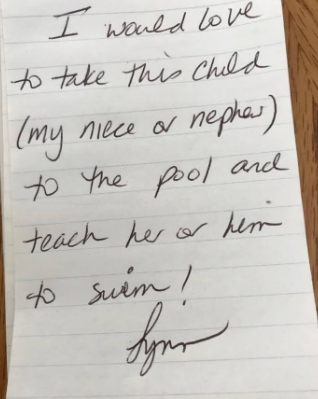 I would love
to take this child
(my niece or nephew)
to the pool and
teach her or him
to swim!
Lynn